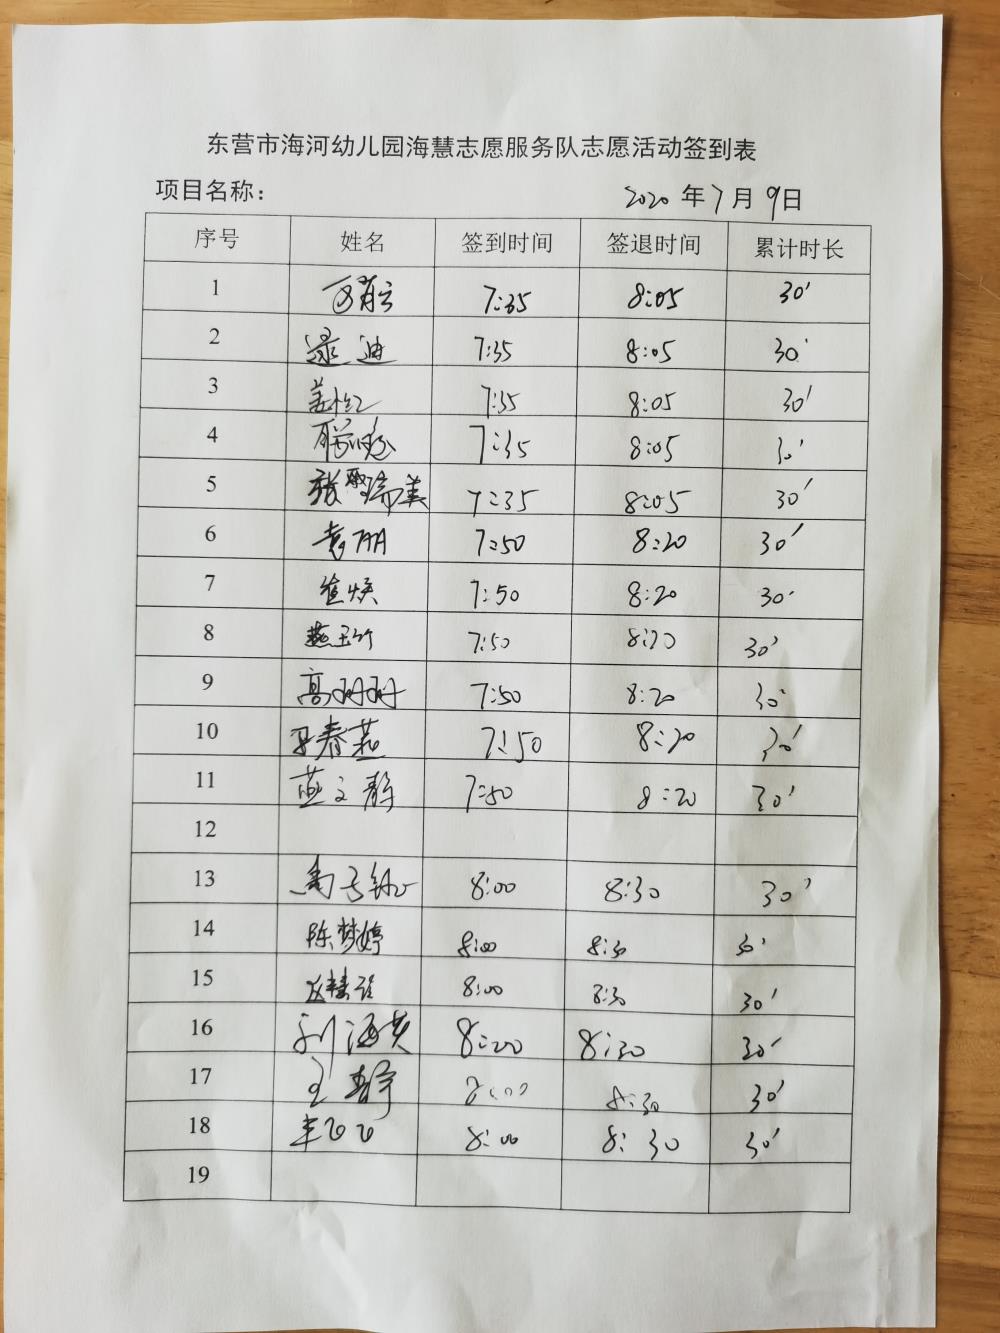 东营市海河幼儿园海慧志愿服务队志愿活动签到表
项目名称： 2020 年 7 月 9 日
序号 姓名 签到时间 签退时间 累计时长
1 7:35 8:05 30'
2 迪 7:35 8:05 30'
3 7:35 8:05 30'
4 7:35 8:05 30'
5 张瑞美 7:35 8:05 30'
6 袁丽 7:50 8:20 30'
7 崔焕 7:50 8:20 30'
8 燕玉竹 7:50 8:20 30'
9 高珊珊 7:50 8:20 30'
10 春燕 7:50 8:20 30'
11 燕文静 7:50 8:20 30'
12
13 8:00 8:30 30'
14 陈梦婷 8:00 8:30 30'
15 8:00 8:30 30'
16 刘海英 8:00 8:30 30'
17 王静 8:00 8:30 30'
18 8:00 8:30 30'
19